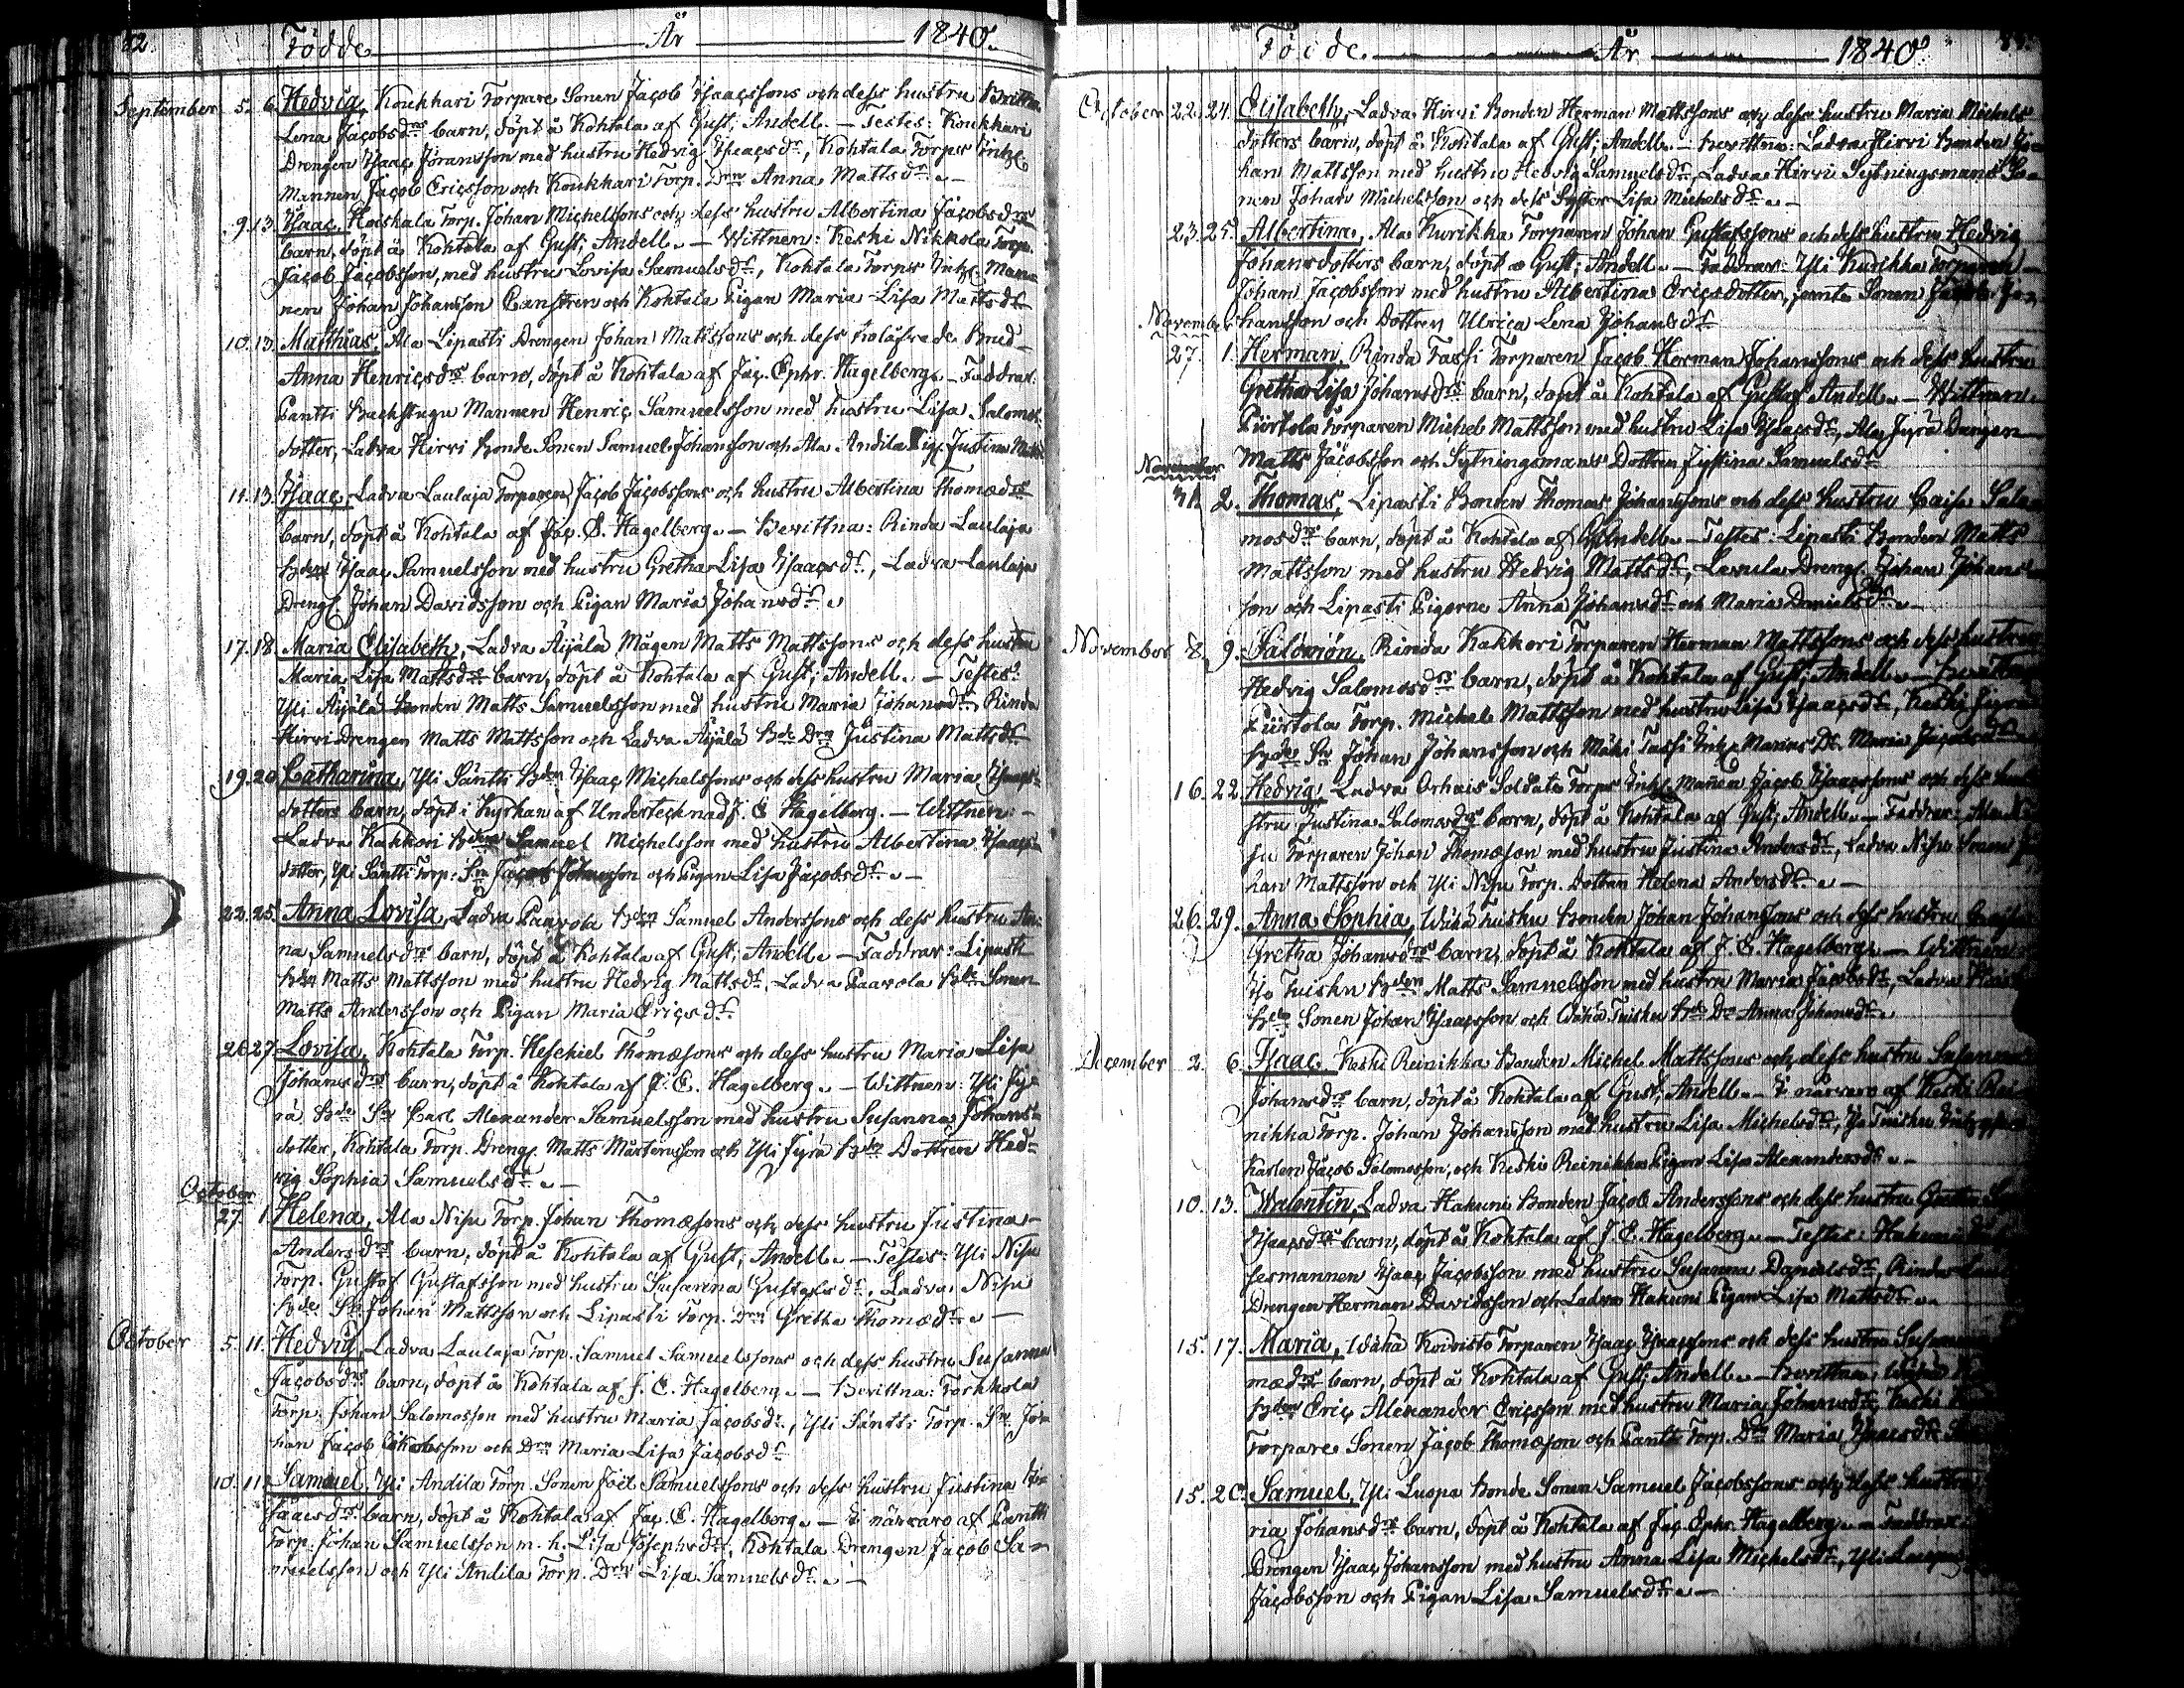 82
Födde År 1840.
September 5. 6. Hedvig, Koukkari Torpare Sonen Jacob Isaacssons och dess hustru Britta
Lena Jacobsdrs barn, döpt å Kohtala af Gust; Andell. — Testes: Koukkari
Drengen Isaac Joransson med hustru Hedvig Isaacsdr, Kohtala Torps Inhs
Mannen Jacob Ericsson och Koukkari Torp. Drn Anna Mattsdr. —
9. 13. Isaac, Torp. Johan Michelssons och dess hustru Albertina Jacobsdrs
barn, döpt å Kohtala af Gust; Andell. — Wittnen: Keski Nikkola Torp.
Jacob Jacobsson, med hustru Lovisa Samuelsdr, Kohtala Torps Inhs. Man-
nen Johan Johansson och Kohtala Pigan Maria Lisa Mattsdr
10. 13. Matthias, Ala Lipasti Drengen Johan Mattssons och dess trolofvade Brud
Anna Henricsdrs barn, döpt å Kohtala af Jac. Ephr. Hagelberg. — Faddrar:
Pantti Backstugu Mannen Henric Samuelsson med hustru Lisa Salomos-
dotter, Ladva Hirvi Bonde Sonen Samuel Johansson och Ala Andila Pig. Justina
11. 13. Isaac, Ladva Laulaja Torparen Jacob Jacobssons och hustru Albertina Thomædrs
barn, döpt å Kohtala af Jac. E. Hagelberg. — Bevittna: Rinda Laulaja
Bden Isaac Samuelsson med hustru Gretha Lisa Isaacsdr, Ladva Laulaja
Dreng. Johan Davidsson och Pigan Maria Johansdr.
17. 18. Maria Elisabeth, Ladva Äijälä Mågen Matts Mattssons och dess hustru
Maria Lisa Mattsdrs barn, döpt å Kohtala af Gust; Andell. — Testes:
Yli Äijälä Bonden Matts Samuelsson med hustru Maria Johansdr, Rinda
Hirvi Drengen Matts Mattsson och Ladva Äijälä Bde Drn Justina Mattsdr
19. 20. Catharina, Yli Säntti Bden Isaac Michelssons och dess hustru Maria Isaacs-
dotters barn, döpt i Kyrkan af Undertecknad J. E. Hagelberg. — Wittnen: —
Ladva Kakkori Samuel Michelsson med hustru Albertina Isaacs-
dotter, Yli Säntti Torp: Sn Jacob Johansson och Pigan Lisa Jacobsdr. —
23. 25. Anna Lovisa, Ladva Paavola Bden Samuel Anderssons och dess hustru An-
na Samuelsdrs barn, döpt å Kohtala af Gust; Andell. — Faddrar: Lipasti
Bden Matts Mattsson med hustru Hedvig Mattsdr, Ladva Paavola Bde Sonen
Matts Andersson och Pigan Maria Ericsdr.
26. 27. Lovisa, Kohtala Torp. Hesekiel Thomæsons och dess hustru Maria Lisa
Johansdrs barn, döpt å Kohtala af J. E. Hagelberg. — Wittnen: Yli Jy-
rä Bde Sn Carl Alexander Samuelsson med hustru Susanna Johans-
dotter, Kohtala Torp. Dreng. Matts Mårtensson och Yli Jyrä Bde Dottren Hed-
vig Sophia Samuelsdr. —
October
27. 1. Helena, Ala Nisu Torp. Johan Thomæsons och dess hustru Justina
Andersdrs barn, döpt å Kohtala af Gust; Andell. — Testes: Yli Nisu
Torp. Gustaf Gustafsson med hustru Susanna Gustafsdr. Ladva Nisu
Bde Sn Johan Mattsson och Lipasti Torp. Drn Gretha Thomædr. —
October 5. 11. Hedvig, Ladva Laulaja Torp. Samuel Samuelssons och dess hustru Susanna
Jacobsdrs barn, döpt å Kohtala af J. E. Hagelberg. — Bevittna: Torkkola
Torp. Johan Salomosson med hustru Maria Jacobsdr, Yli Säntti Torp. Sn Jo-
han Jacob och Drn Maria Lisa Jacobsdr
10. 11. Samuel, Yli Andila Torp. Sonen Joël Samuelssons och dess hustru Justina
Isaacsdrs barn, döpt å Kohtala af Jac. E. Hagelberg. — I närvaro af Pantti
Torp. Johan Samuelsson m. h. Lisa Josephsdr, Kohtala Drengen Jacob Sa-
muelsson och Yli Andila Torp. Drn Lisa Samuelsdr. —
Födde. År 1840.
October 22. 24. Elisabeth, Ladva Hirvi Bonden Herman Mattssons och dess hustru Maria Michels
dotters barn, döpt å Kohtala af Gust; Andell. — Bevittna: Ladva Hirvi Bonden Jo-
han Mattsson med hustru Hedvig Samuelsdr, Ladva Hirvi Sytningsmans So-
nen Johan Michelsson och dess Syster Lisa Michelsdr. —
23. 25. Albertina, Ala Kurikka Torparen Johan Gustafssons och dess hustru Hedvig
Johansdotters barn, döpt af Gust; Andell. — Faddrar: Yli Kurikka Torparen
Johan Jacobsson med hustru Albertina Ericsdotter, jemte Sonen Jacob Jo-
November hansson och Dottren Ulrica Lena Johansdr
27. 1. Herman, Rinda Tassi Torparen Jacob Herman Johanssons och dess hustru
Gretha Lisa Johansdrs barn, döpt å Kohtala af Gustaf Andell. — Wittnen:
Piirtola Torparen Michel Mattsson med hustru Lisa Isaacsdr, Ala Jyrä Drengen
November Matts Jacobsson och Sytningsmans Dottren Justina Samuelsdr
31. 2. Thomas, Lipasti Bonden Thomas Johanssons och dess hustru Caisa Salo-
mosdrs barn, döpt å Kohtala af G. Andell. — Testes: Lipasti Bonden Matts
Mattsson med hustru Hedvig Mattsdr, Lavula Dreng. Johan Johans-
son och Lipasti Pigorne Anna Johansdr och Maria Danielsdr. —
November 8. 9. Salomon, Rinda Kakkori Torparen Herman Mattssons och dess hustru
Hedvig Salomosdrs barn, döpt å Kohtala af Gust; Andell. —
Piirtola Torp. Michel Mattsson med hustru Lisa Isaacsdr, Keski Jyrä
Bde Sn Johan Johansson och Mäki Tassi Inhs Mans Dr. Maria Jacobsdr
16. 22. Hedvig, Ladva Orhais Soldats Torps Inhs. Mannen Jacob Isaacssons och dess hu-
stru Justina Salomosdrs barn, döpt å Kohtala af Gust; Andell. — Faddrar: Ala Ni-
su Torparen Johan Thomæson med hustru Justina Andersdr, Ladva Nisu Sonen Jo-
han Mattsson och Yli Nisu Torp. Dottren Helena Andersdr. —
26. 29. Anna Sophia, Wähä Tuisku Bonden Johan Johanssons och dess hustru
Gretha Johansdrs barn, döpt å Kohtala af J. E. Hagelberg. — Wittnen:
Iso Tuisku Bden Matts Samuelsson med hustru Maria Jacobsdr, Ladva
Bde Sonen Johan Isaacsson och Wähä Tuisku Bde Dr Anna Johansdr.
December 2. 6. Isaac, Keski Reinikka Bonden Michel Mattssons och dess hustru Susanna
Johansdrs barn, döpt å Kohtala af Gust; Andell. — I närvaro af Keski Rei-
nikka Torp. Johan Johansson med hustru Lisa Michelsdr, Iso Tuisku
Karlen Jacob Salomosson, och Keski Reinikka Pigan Lisa Alexandersdr. —
10. 13. Walentin, Ladva Hakuni Bonden Jacob Anderssons och dess hustru Gretha
Isaacsdrs barn, döpt å Kohtala af J. E. Hagelberg. — Testes: Hakuni
sesmannen Isaac Jacobsson med hustru Susanna Danielsdr, Rinda
Drengen Herman Davidsson och Ladva Hakuni Pigan Lisa Mattsdr. —
15. 17. Maria, Wähä Koivisto Torparen Isaac Isaacssons och dess hustru Susanna
mædrs barn, döpt å Kohtala af Gust; Andell. — Bevittna: Wähä
Bden Eric Alexander Ericsson med hustru Maria Johansdr, Keski
Torpare Sonen Jacob Thomæson och Pantti Torp. Drn Maria Isaacsdr
15. 20. Samuel, Yli Luopa Bonde Sonen Samuel Jacobssons och dess hustru
ria Johansdrs barn, döpt å Kohtala af Jac. Ephr. Hagelberg. — Faddrar:
Drengen Isaac Johansson med hustru Anna Lisa Michelsdr, Yli Luopa
Jacobsson och Pigan Lisa Samuelsdr. —